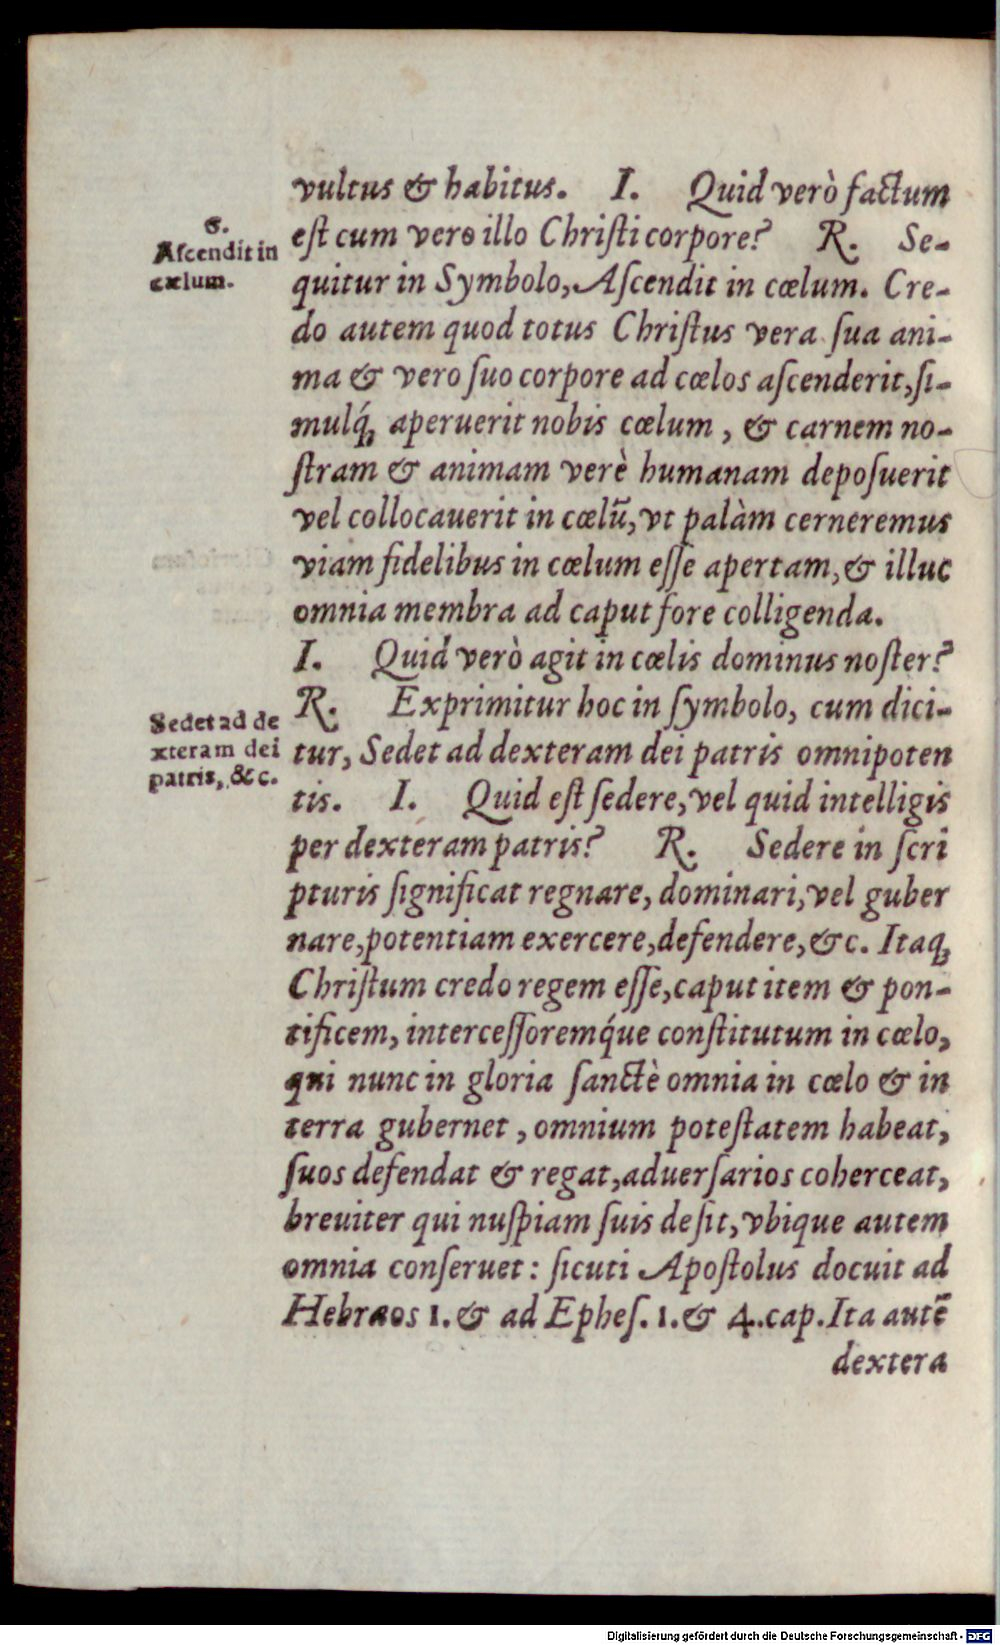 vultus & habitus. I. Quid verò factum
6.
Aſcendit in
cælum.
eſt cum vero illo Chriſti corpore? R. Se-
quitur in Symbolo, Aſcendit in cœlum. Cre-
do autem quod totus Chriſtus vera ſua ani-
ma & vero ſuo corpore ad cœlos aſcenderit, ſi-
mulq́; aperuerit nobis cœlum, & carnem no-
ſtram & animam verè humanam depoſuerit
vel collocauerit in cœlū, vt palàm cerneremus
viam fidelibus in cœlum eſſe apertam, & illuc
omnia membra ad caput fore colligenda.
I. Quid verò agit in cœlis dominus noſter?
Sedet ad de
xteram dei
patris, &c.
R. Exprimitur hoc in ſymbolo, cum dici-
tur, Sedet ad dexteram dei patris omnipoten
tis. I. Quid eſt ſedere, vel quid intelligis
per dexteram patris? R. Sedere in ſcri
pturis ſignificat regnare, dominari, vel guber
nare, potentiam exercere, defendere, &c. Itaq;
Chriſtum credo regem eſſe, caput item & pon-
tificem, interceſſoremq́ue conſtitutum in cœlo,
qui nunc in gloria ſanctè omnia in cœlo & in
terra gubernet, omnium poteſtatem habeat,
ſuos defendat & regat, aduerſarios coherceat,
breuiter qui nuſpiam ſuis deſit, vbique autem
omnia conſeruet: ſicuti Apoſtolus docuit ad
Hebræos 1. & ad Epheſ. 1. & 4. cap. Ita autē
dextera
Digitalisierung gefördert durch die Deutsche Forschungsgemeinschaft - DFG